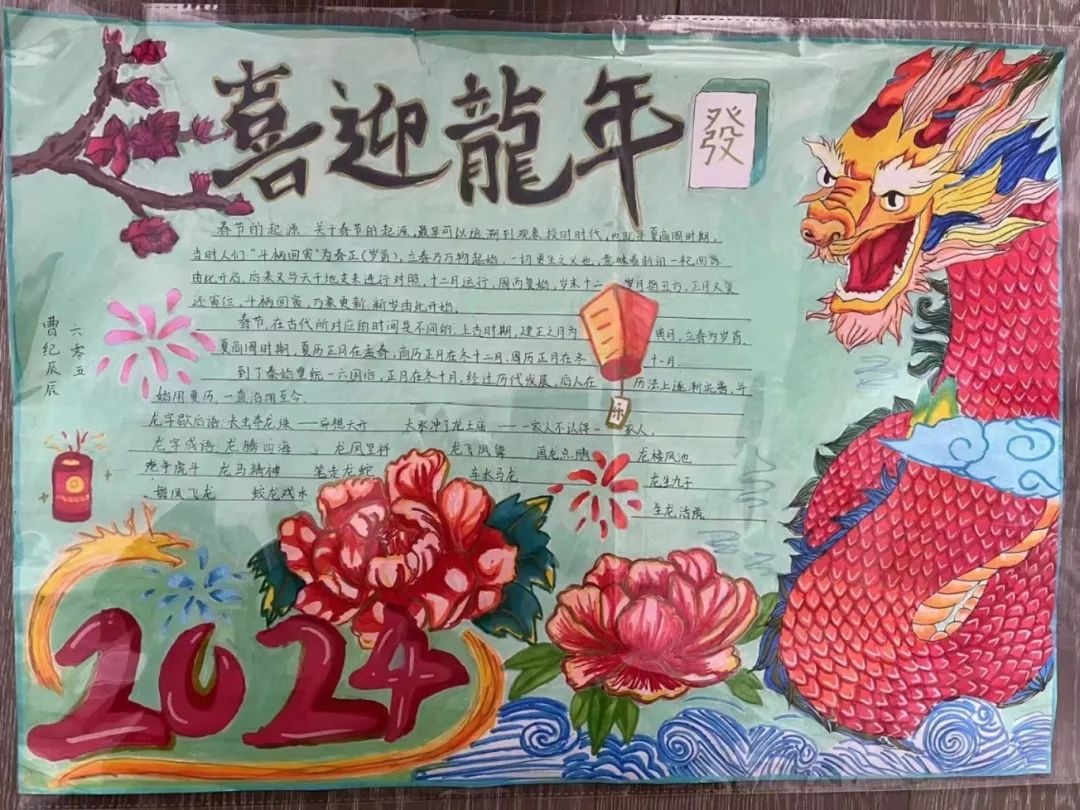 喜迎龍年
發
春节的起源 关于春节的起源,最早可以追溯到观象授时时代,也就是夏商周时期,
当时人们“斗柄回寅”为春正(岁首),立春万物起始、一切更生之义也,意味着新的一轮回
由此开启,后来又与天干地支来进行对照,十二月运行,周而复始,岁末十二 岁月指丑方,正月又复
还寅位,斗柄回寅,万象更新,新岁由此开始。
春节,在古代所对应的时间是不同的,上古时期,建正之月为 寅月,立春为岁首、
夏商周时期,夏历正月在孟春,商历正月在冬十二月,周历正月在冬 十一月
到了秦始皇统一六国后,正月在冬十月,经过历代发展,后人在 历法上逐渐完善,开
始用夏历,一直沿用至今。
龙字歇后语 长虫夺龙珠——异想天开 大水冲了龙王庙——一家人不认得一 家人。
龙字成语 龙腾四海、 龙凤呈祥 龙飞凤舞 画龙点睛 龙楼凤池
龙争虎斗 龙马精神 笔走龙蛇 车水马龙 龙生九子
舞凤飞龙 蛟龙戏水 生龙活虎
乐
六零五
曹纪辰辰
2024